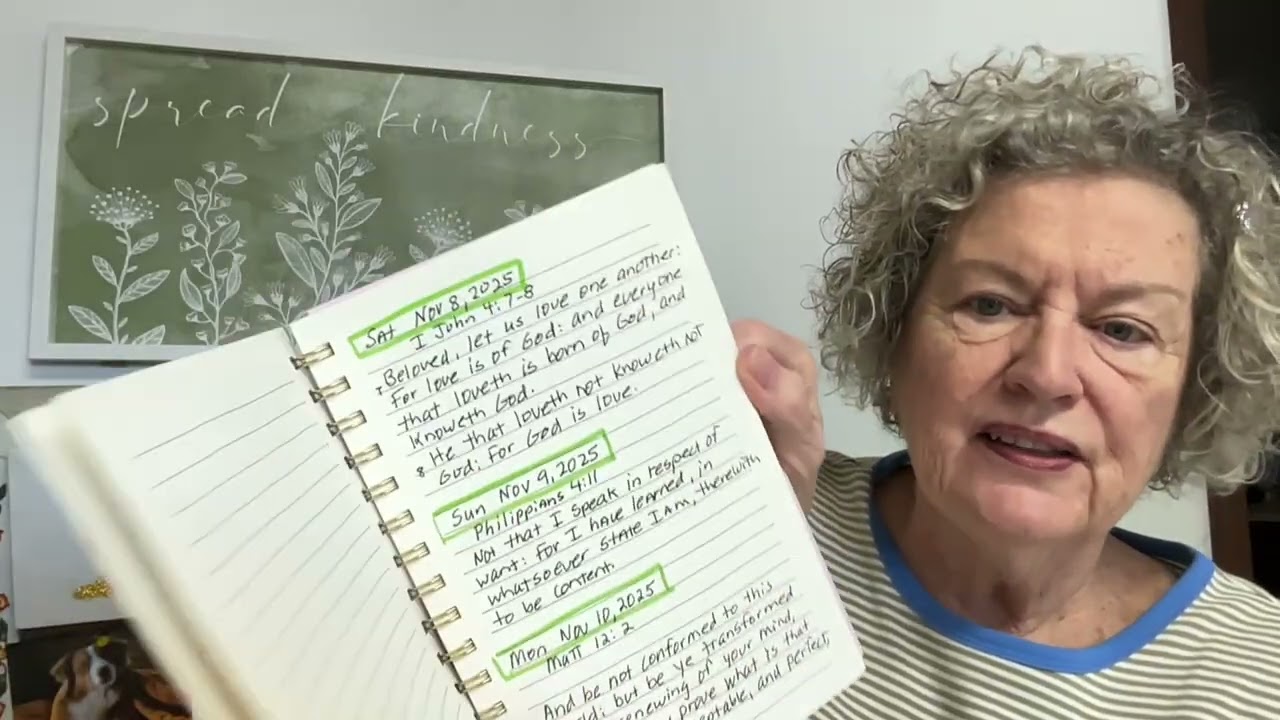 spread kindness
Sat Nov 8, 2025
I John 4:7-8
7 Beloved, let us love one another:
For love is of God: and everyone
that loveth is born of God, and
Knoweth God.
8 He that loveth not knoweth not
God; for God is love.
Sun Nov 9, 2025
Philippians 4:11
Not that I speak in respect of
want: For I have learned, in
whatsoever state I am, therewith
to be content.
Mon Nov 10, 2025
Matt 12:2
And be not conformed to this
but be ye transformed
renewing of your mind,
prove what is that
and perfect,